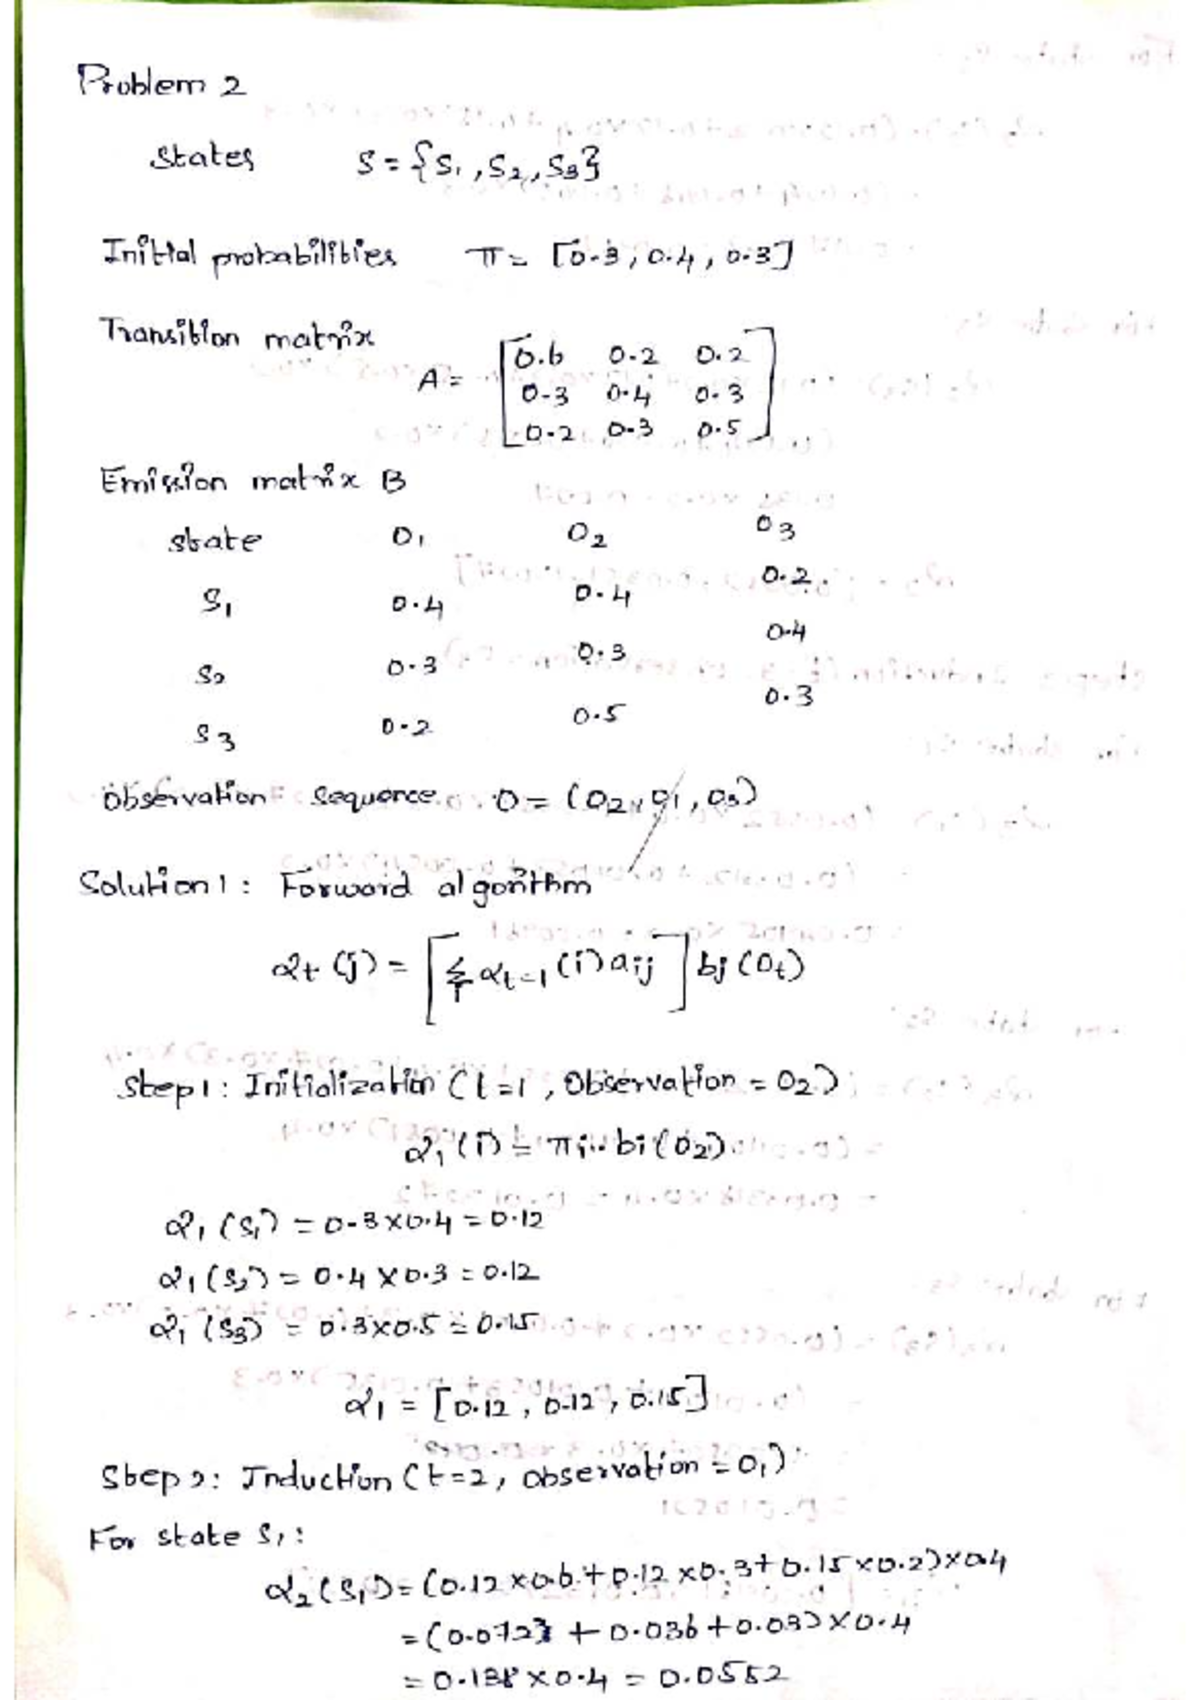 Problem 2
States S = {S₁, S₂, S₃}
Initial probabilities π = [0.3, 0.4, 0.3]
Transition matrix
A = [0.6 0.2 0.2
0.3 0.4 0.3
0.2 0.3 0.5]
Emission matrix B
state O₁ O₂ O₃
S₁ 0.4 0.4 0.2
S₂ 0.3 0.3 0.4
S₃ 0.2 0.5 0.3
Observation sequence O = (O₂, O₁, O₃)
Solution 1: Forward algorithm
αt (j) = [Σ αt-1 (i) aij] bj (Ot)
Step 1: Initialization (t=1, Observation = O₂)
α₁ (i) = πi · bi (O₂)
α₁ (S₁) = 0.3 × 0.4 = 0.12
α₁ (S₂) = 0.4 × 0.3 = 0.12
α₁ (S₃) = 0.3 × 0.5 = 0.15
α₁ = [0.12, 0.12, 0.15]
Step 2: Induction (t=2, observation = O₁)
For state S₁:
α₂ (S₁) = (0.12 × 0.6 + 0.12 × 0.3 + 0.15 × 0.2) × 0.4
= (0.072 + 0.036 + 0.03) × 0.4
= 0.138 × 0.4 = 0.0552